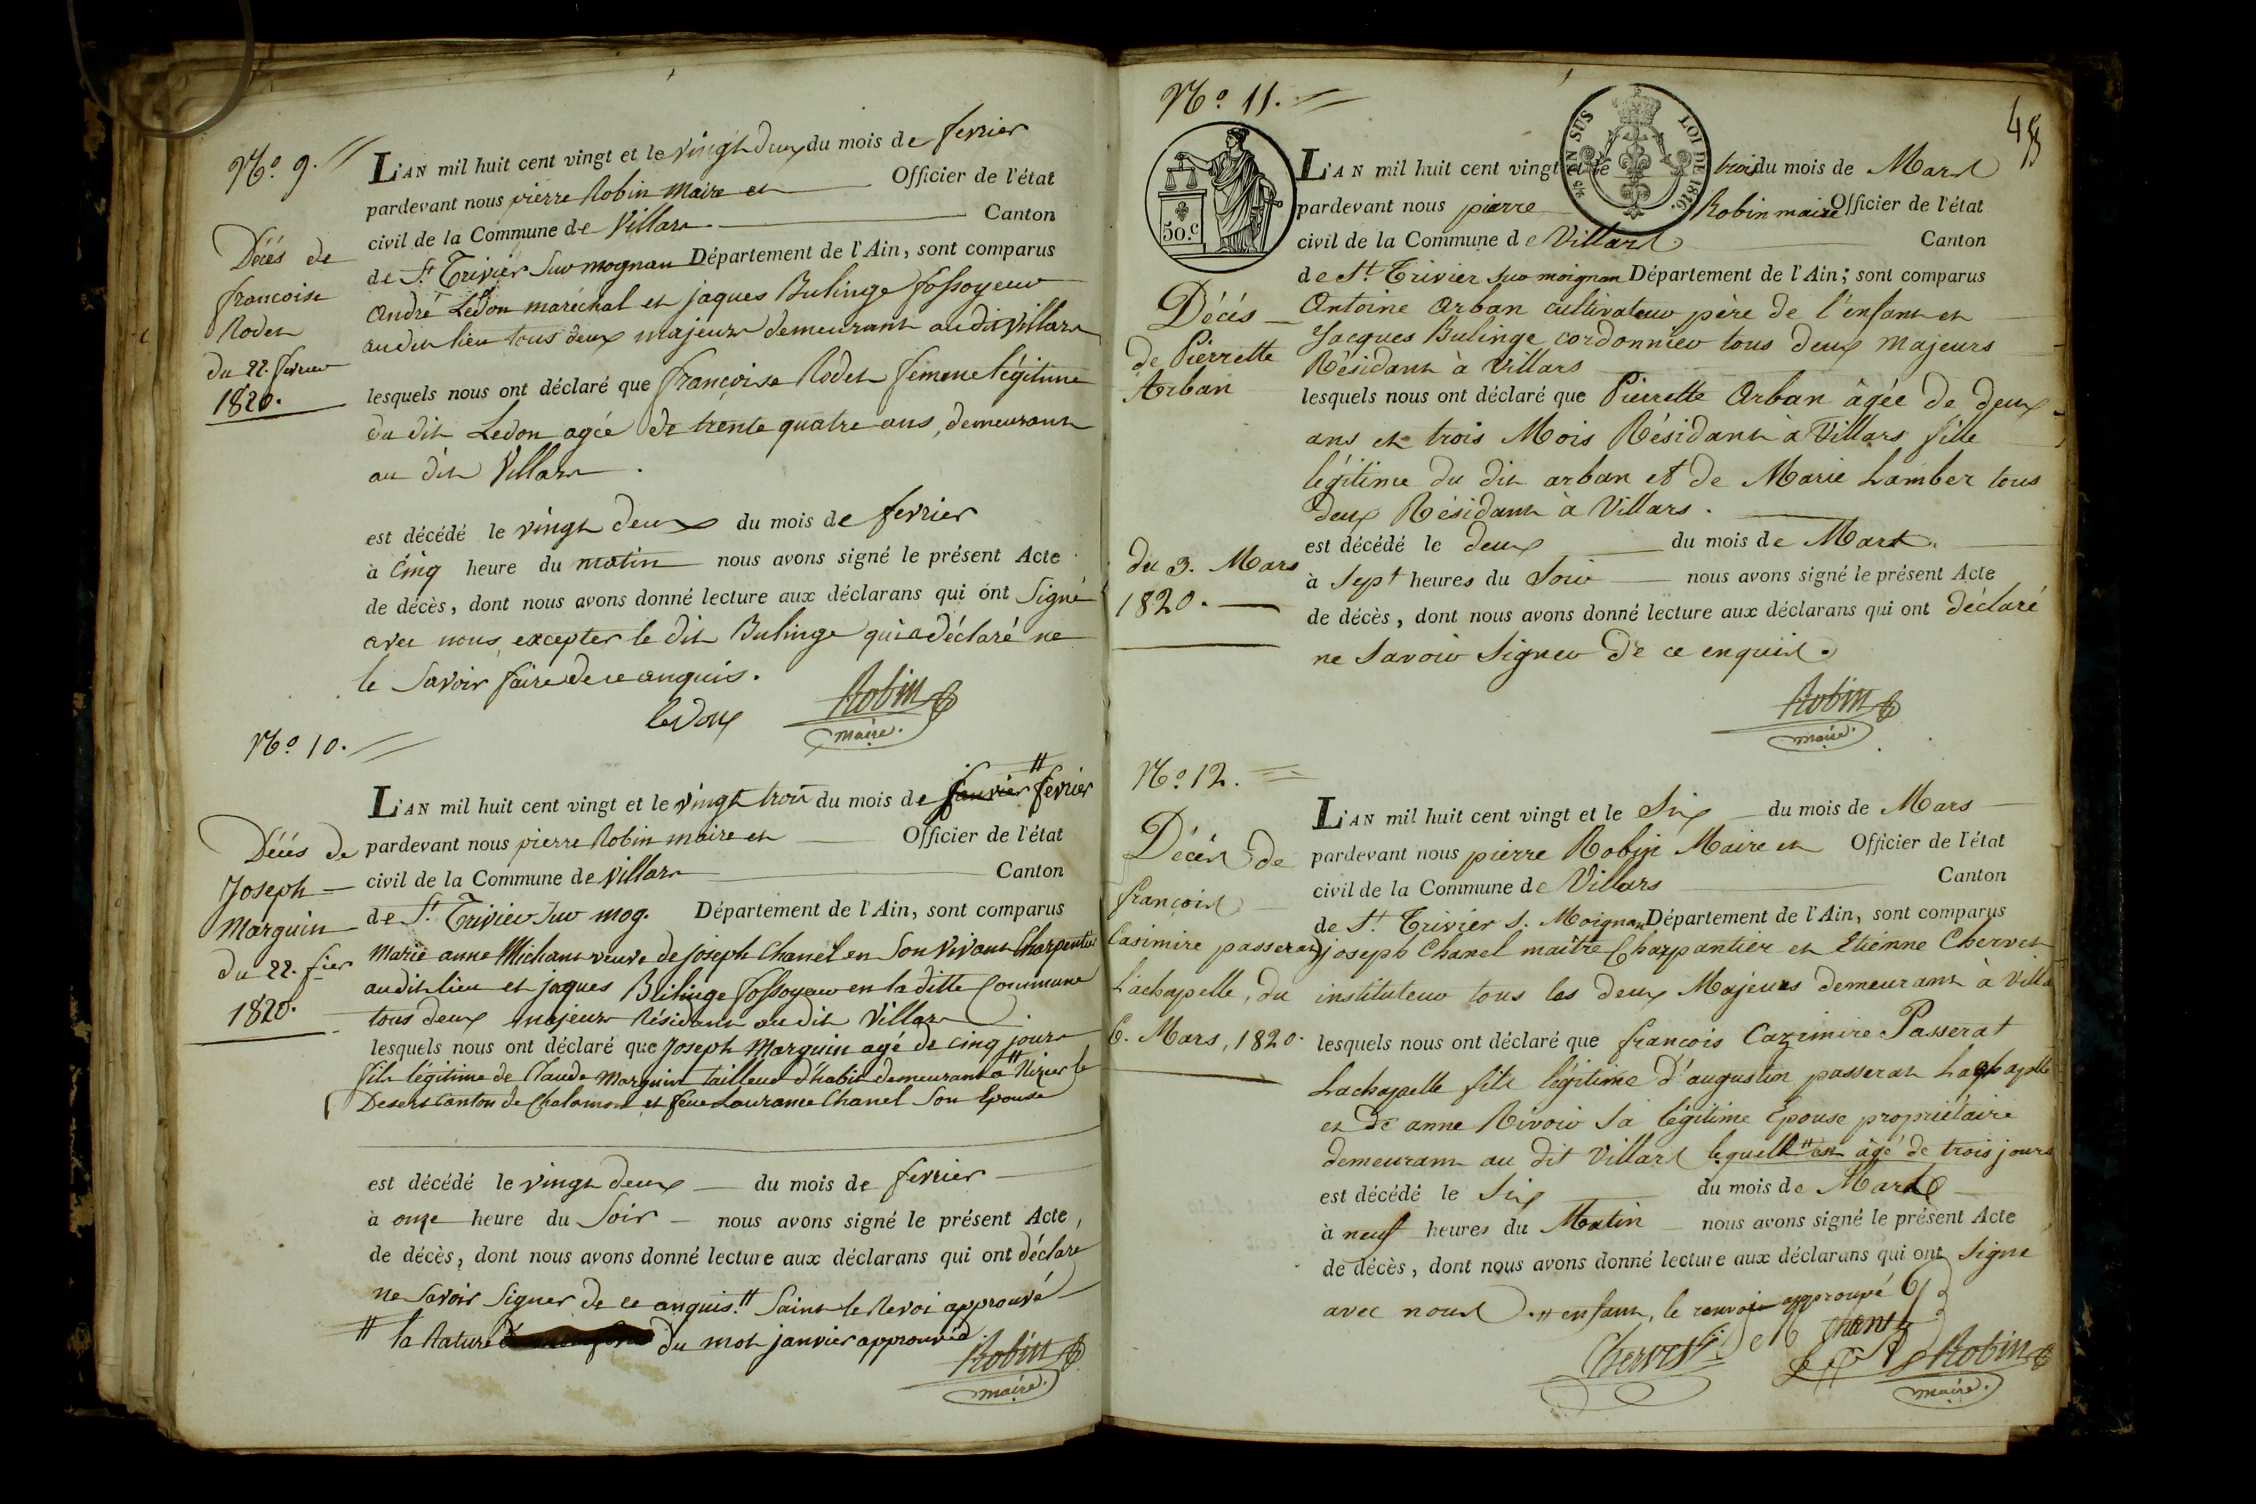 N.o 9.
L'AN mil huit cent vingt et le vingt deux du mois de fevrier
pardevant nous pierre Robin maire et Officier de l'état
civil de la Commune de Villars Canton
de St. Trivier Sur mognan Département de l'Ain, sont comparus
André Ledou maréchal et jaques Bulinge fossoyeur
audit lieu tous deux majeurs demeurant audit villars
lesquels nous ont déclaré que françoise Rodet femme légitime
du dit Ledou agée de trente quatre ans, demeurant
au dit Villars.
est décédé le vingt deux du mois de fevrier
à cinq heure du matin nous avons signé le présent Acte
de décès, dont nous avons donné lecture aux déclarans qui ont Signé
avec nous, excepter le dit Bulinge qui a déclaré ne
le Savoir faire de ce anquis.
ledoux Robin
maire.
Décés de
françoise
Rodet
du 22. fevrier
1820.
N.o 10.
L'AN mil huit cent vingt et le vingt trois du mois de janvier fevrier
pardevant nous pierre Robin maire et Officier de l'état
civil de la Commune de villars Canton
de St. Trivier Sur mog. Département de l'Ain, sont comparus
Marie anne Michant veuve de joseph Chanel en Son vivant Charpentier
audit lieu et jaques Bulinge fossoyeur en la ditte Commune
tous deux majeurs Résidant audit Villars
lesquels nous ont déclaré que Joseph Marguin agé de cinq jours
fils légitime de Claude Marguin tailleur d'habit demeurant a # Nizier le
Desert Canton de Chalamont et feue Laurance Chanel Son Epouse
est décédé le vingt deux du mois de fevrier
à onze heure du Soir nous avons signé le présent Acte,
de décès, dont nous avons donné lecture aux déclarans qui ont déclaré
ne Savoir Signer de ce anquis. # Saint le Renvoi approuvé
# la Rature du mot janvier approuvée.
Robin
maire.
Décés de
Joseph
Marguin
du 22. fier
1820.
N.o 11.
45
50.c
EN SUS
LOI DE 1816.
L'AN mil huit cent vingt et le trois du mois de Mars
pardevant nous pierre Robin maire Officier de l'état
civil de la Commune de Villars Canton
de St. Trivier Sur moignan Département de l'Ain; sont comparus
Antoine Arban cultivateur père de l'enfant et
Jacques Bulinge cordonnier tous deux Majeurs
Résidant à Villars
lesquels nous ont déclaré que Pierrette Arban âgée de deux
ans et trois Mois Résidant à Villars fille
légitime du dit arban et de Marie Lamber tous
deux Résidant à Villars.
est décédé le deux du mois de Mars
à Sept heures du Soir nous avons signé le présent Acte
de décès, dont nous avons donné lecture aux déclarans qui ont déclaré
ne Savoir Signer de ce enquis.
Robin
maire.
Décés
de Pierrette
Arban
du 3. Mars
1820.
N.o 12.
L'AN mil huit cent vingt et le Six du mois de Mars
pardevant nous pierre Robin Maire et Officier de l'état
civil de la Commune de Villars Canton
de St. Trivier S. Moignan Département de l'Ain, sont comparus
joseph Chanel maître Charpantier et Etiénne Chervet
instituteur tous les deux Majeurs demeurant à Villa
lesquels nous ont déclaré que françois Cazimire Passerat
Lachapelle fils légitime d'augustin passerat Lachapelle
et de anne Rivoir Sa légitime Epouse propriétaire
demeurant au dit Villars lequell # est âgé de trois jours
est décédé le Six du mois de Mars
à neuf heures du Matin nous avons signé le présent Acte
de décès, dont nous avons donné lecture aux déclarans qui ont Signé
avec nous. # enfant, le renvoi approuvé
Chervet Robin
maire.
Décés de
françois
Casimire passerat
Lachapelle, du
6. Mars, 1820.